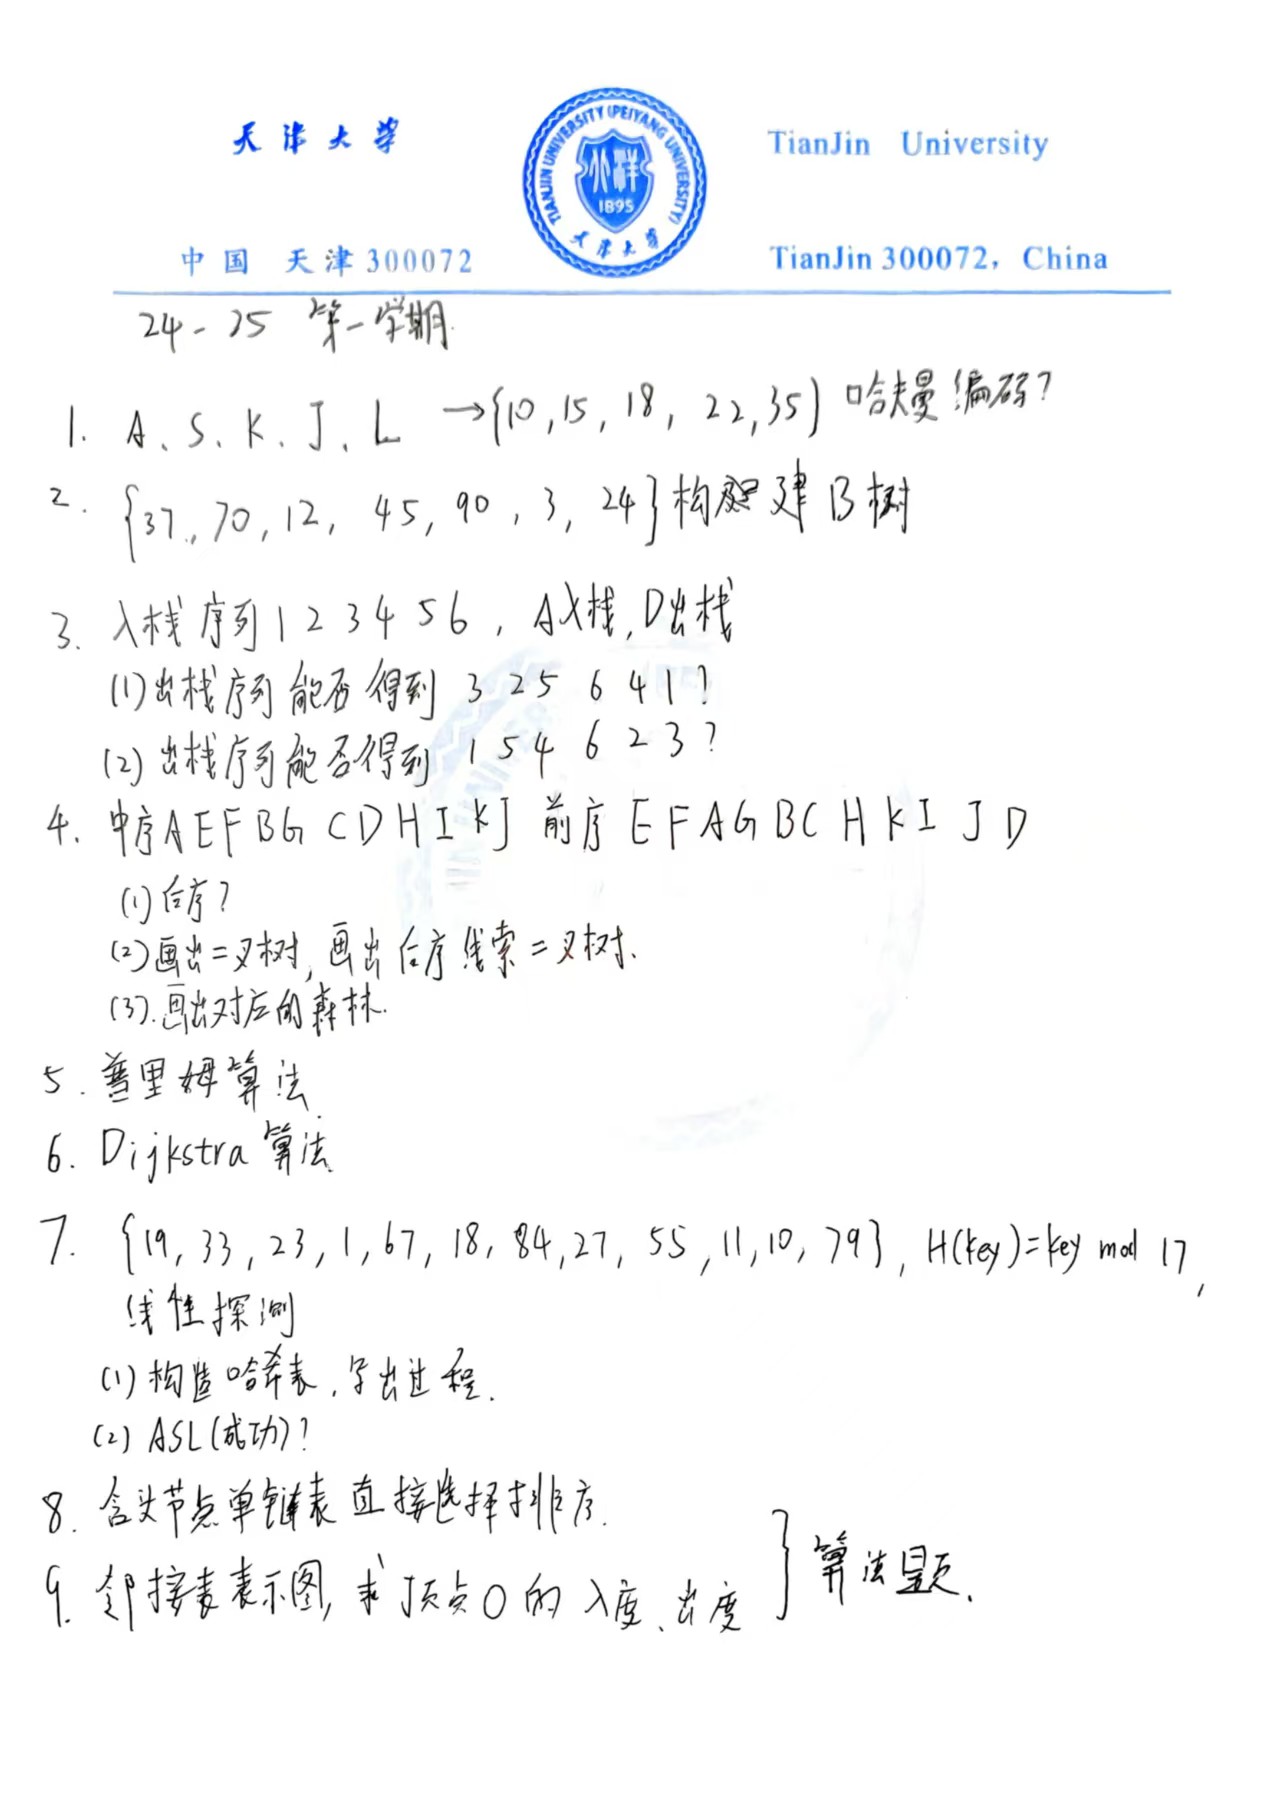 天津大学
TIANJIN UNIVERSITY (PEIYANG UNIVERSITY)
1895
天津大学
TianJin University
中国 天津 300072
TianJin 300072, China
24-25 第一学期
1. A、S、K、J、L → {10, 15, 18, 22, 35} 哈夫曼编码?
2. {37, 70, 12, 45, 90, 3, 24} 构建 B树
3. 入栈序列 1 2 3 4 5 6, A入栈, D出栈
(1) 出栈序列能否得到 3 2 5 6 4 1?
(2) 出栈序列能否得到 1 5 4 6 2 3?
4. 中序 A E F B G C D H I K J 前序 E F A G B C H K I J D
(1) 后序?
(2) 画出二叉树, 画出后序线索二叉树.
(3). 画出对应的森林.
5. 普里姆算法.
6. Dijkstra 算法.
7. {19, 33, 23, 1, 67, 18, 84, 27, 55, 11, 10, 79}, H(key)=key mod 17,
线性探测
(1) 构造哈希表, 写出过程.
(2) ASL(成功)?
8. 含头节点单链表直接选择排序.
9. 邻接表表示图, 求顶点0的入度、出度
} 算法题.